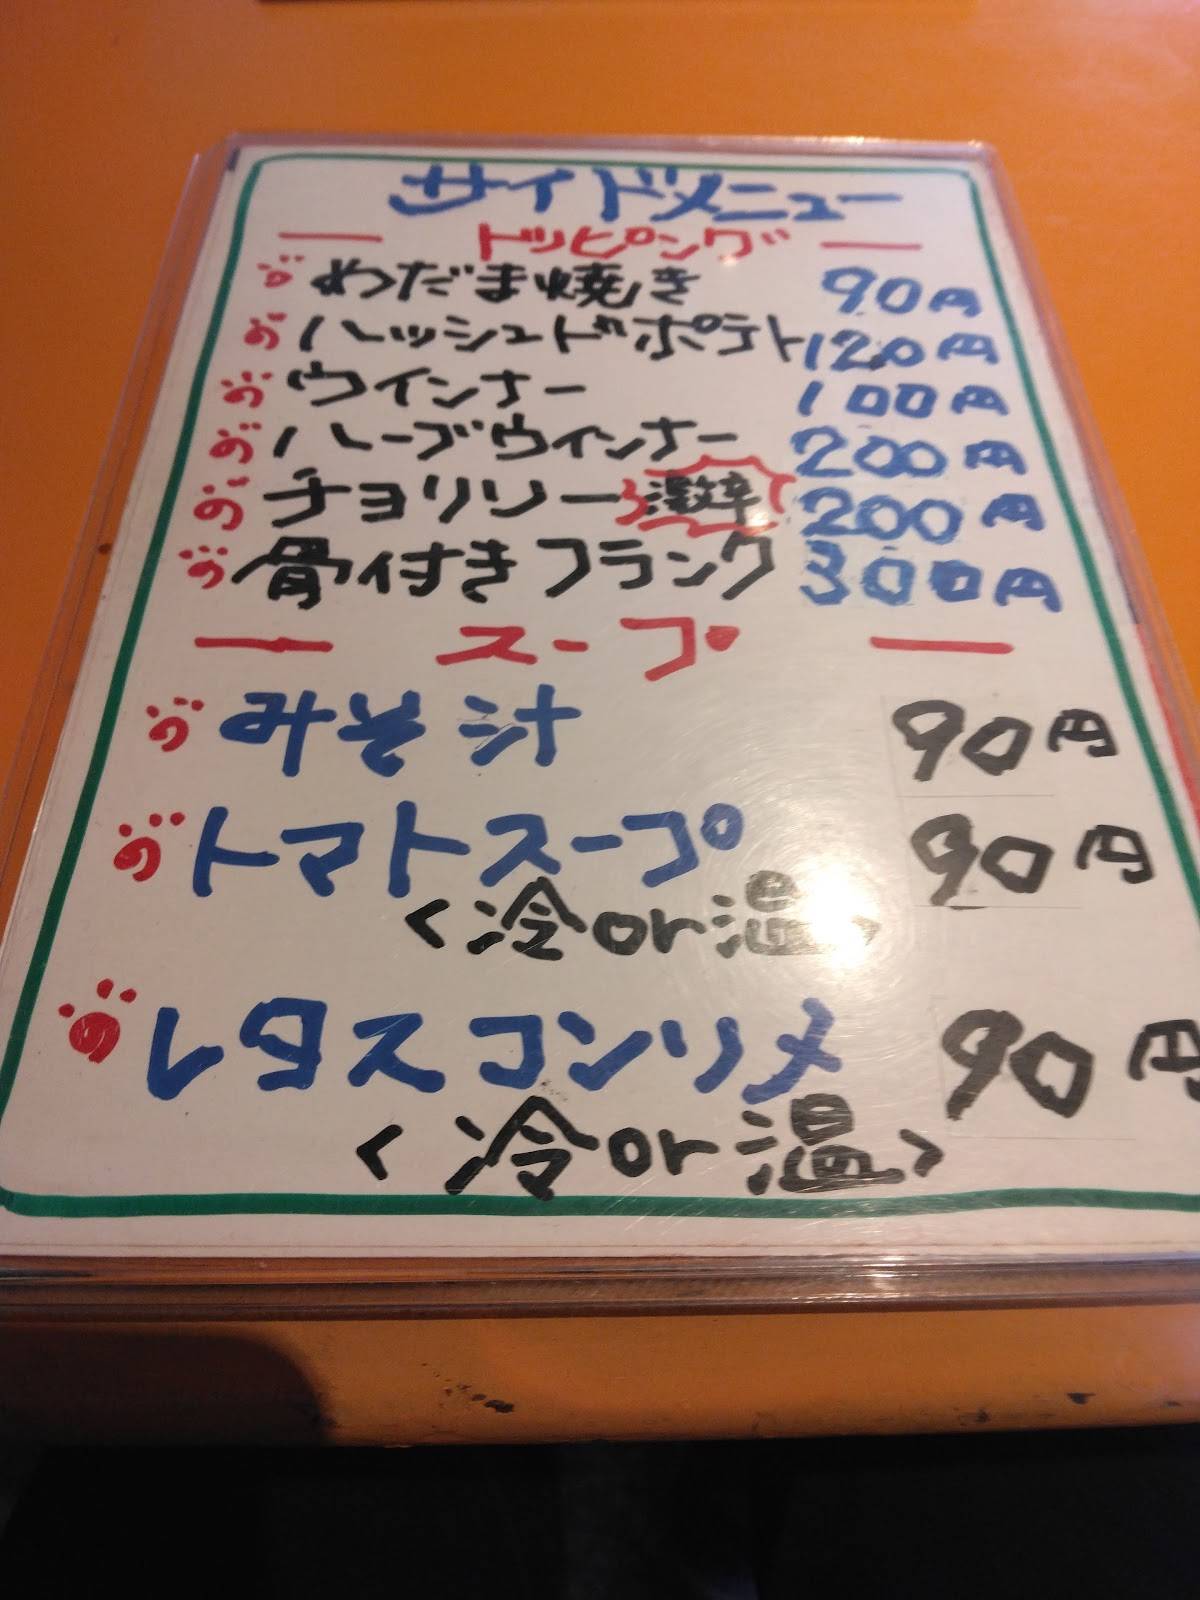 サイドメニュー
トッピング
めだま焼き 90円
ハッシュドポテト 120円
ウインナー 100円
ハーブウインナー 200円
チョリソー 激辛 200円
骨付きフランク 300円
スープ
みそ汁 90円
トマトスープ 90円
<冷or温>
レタスコンソメ 90円
<冷or温>